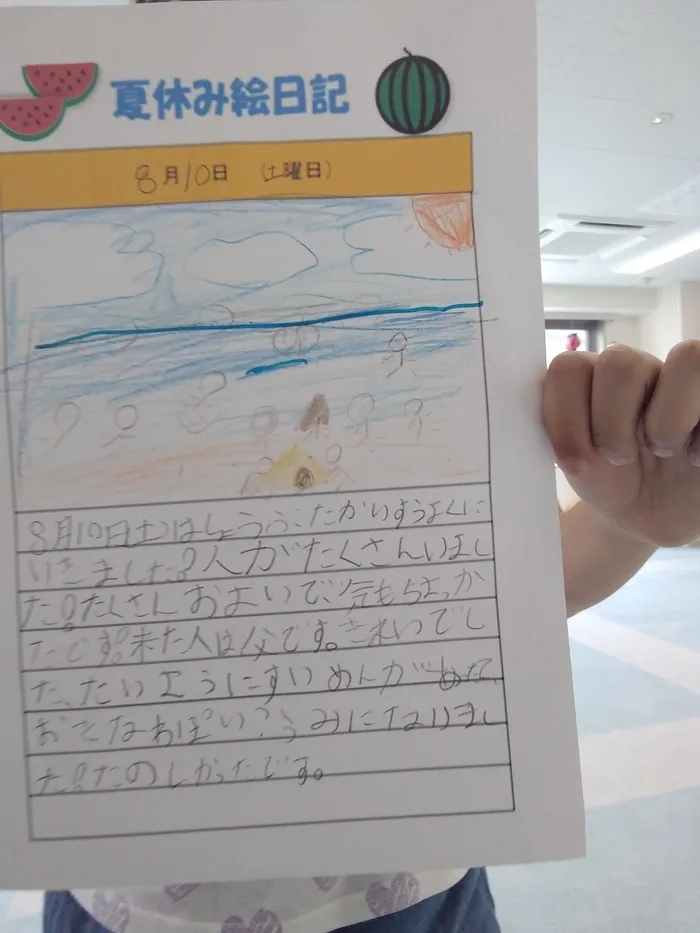 夏休み絵日記
8月10日 (土曜日)
8月10日土はしょう
いきました。人がたくさんいまし
た。たくさんおよいで、気もちよっか
たです。来た人は父です。きれいでし
た、たいようにすいめんが
おとなあぽい?うみになりまし
た。たのしかったです。